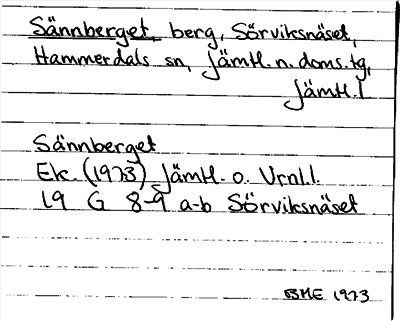 Sännberget, berg, Sörviksnäset,
Hammerdals sn, Jämtl. n. doms. tg,
Jämtl. l
Sännberget
Ek. (1973) Jämtl. o. Vrnl. l.
19 G 8-9 a-b Sörviksnäset
BME 1973